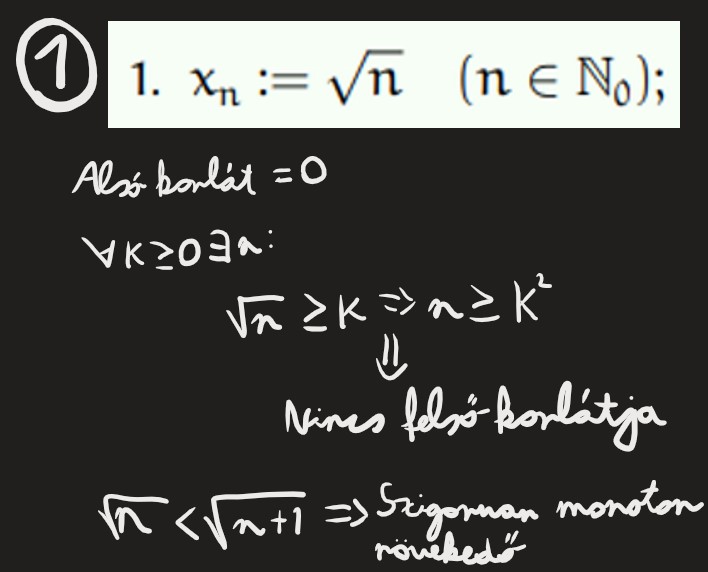 ① 1. xₙ := √n (n ∈ ℕ₀);
Alsó korlát = 0
∀K≥0 ∃n:
√n ≥ K ⇒ n ≥ K²
⇓
Nincs felső korlátja
√n < √(n+1) ⇒ Szigoruan monoton
növekedő